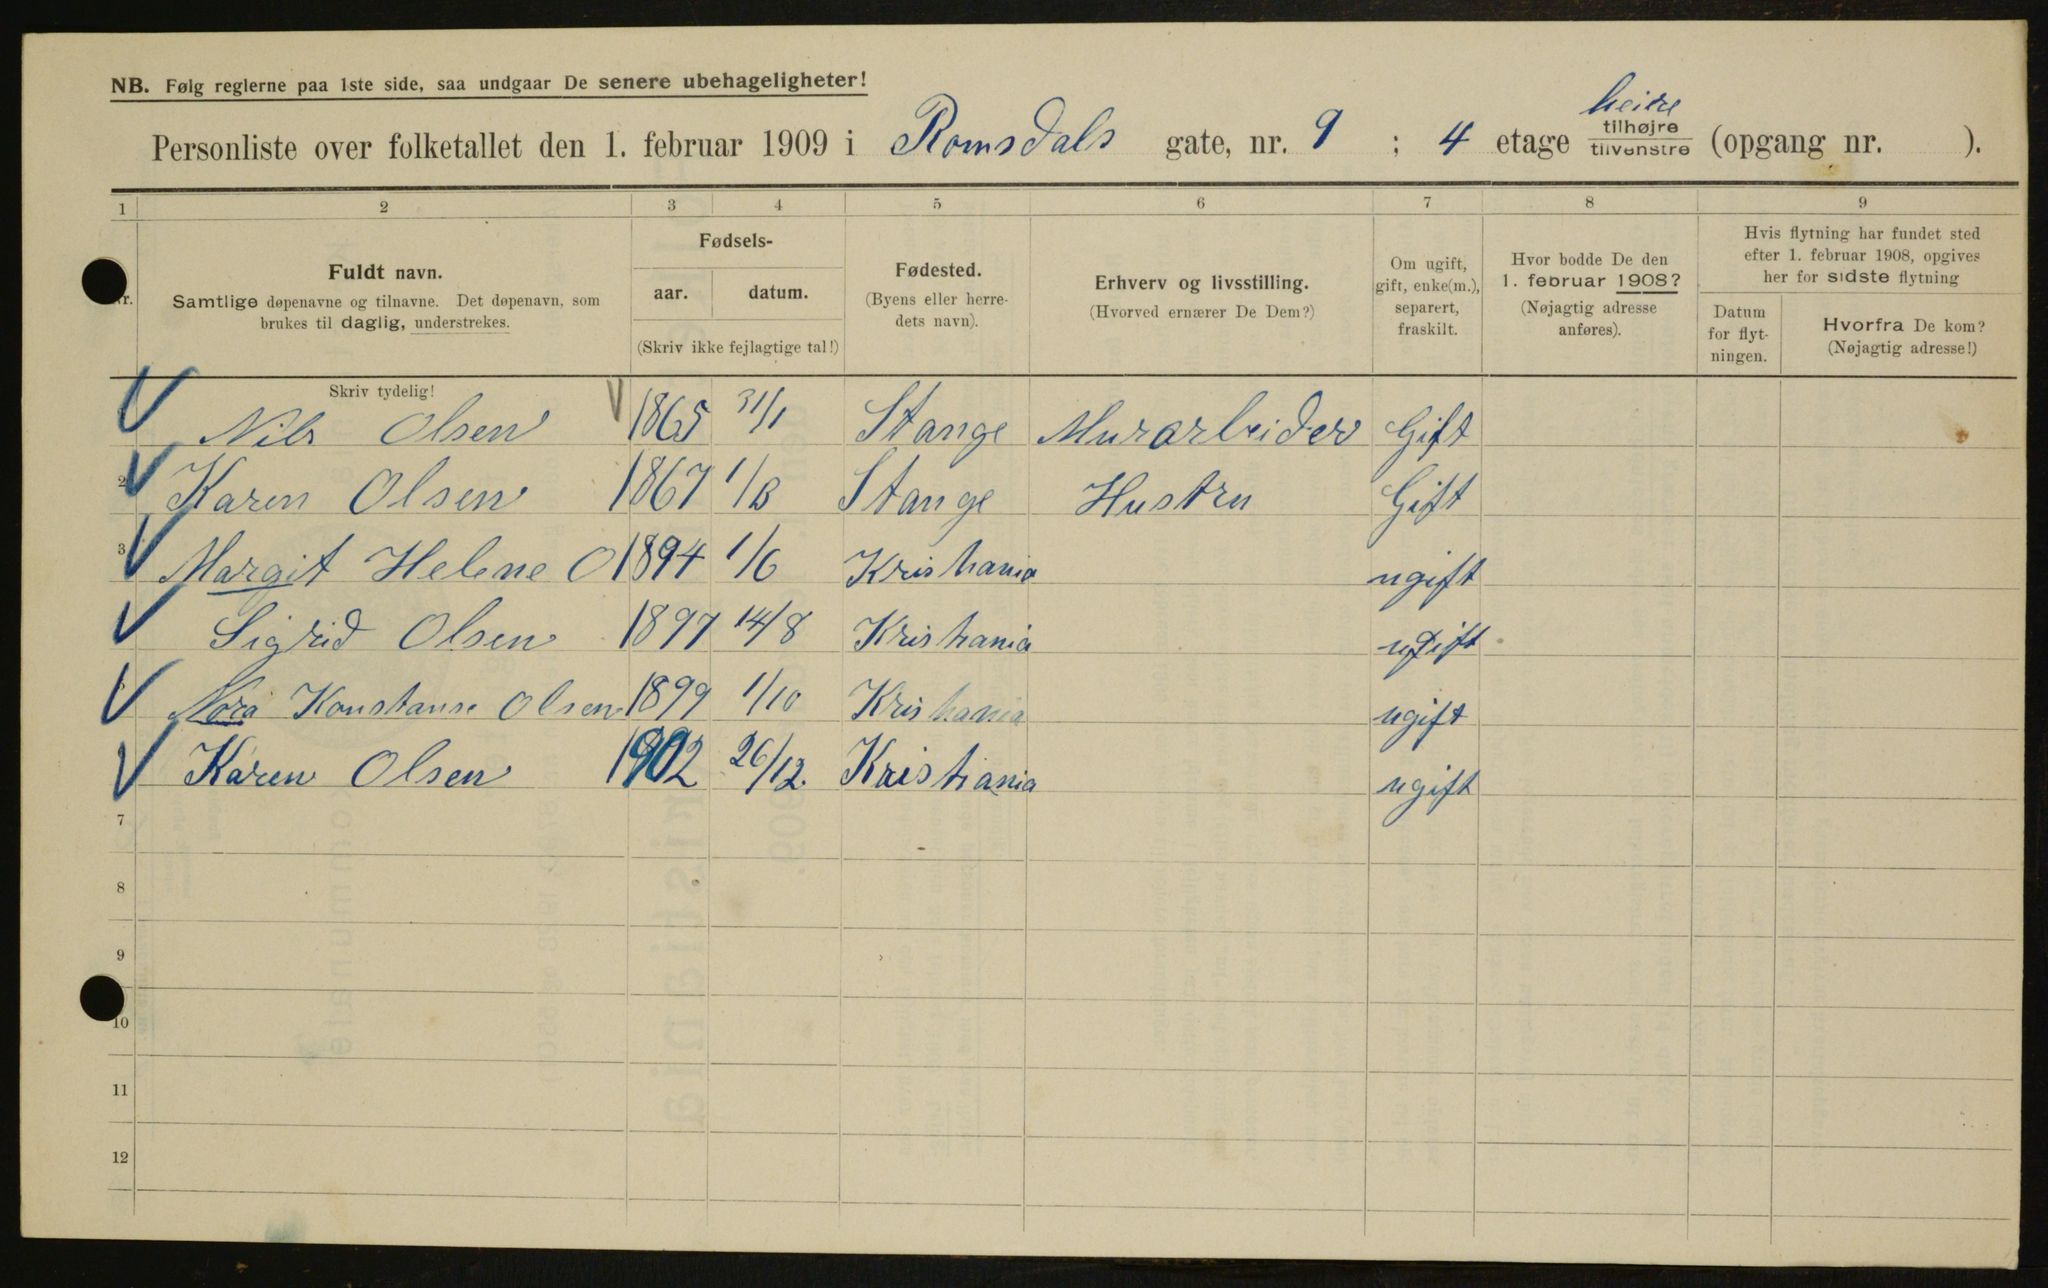 NB. Følg reglerne paa 1ste side, saa undgaar De senere ubehageligheter!
heire
Personliste over folketallet den 1. februar 1909 i Romsdals gate, nr. 9 ; 4 etage tilhøjre tilvenstre (opgang nr. ).
1 2 3 4 5 6 7 8 9
Nr.
Fuldt navn.
Samtlige døpenavne og tilnavne. Det døpenavn, som
brukes til daglig, understrekes.
Fødsels-
aar. datum.
(Skriv ikke fejlagtige tal!)
Fødested.
(Byens eller herre-
dets navn).
Erhverv og livsstilling.
(Hvorved ernærer De Dem?)
Om ugift,
gift, enke(m.),
separert,
fraskilt.
Hvor bodde De den
1. februar 1908?
(Nøjagtig adresse
anføres).
Hvis flytning har fundet sted
efter 1. februar 1908, opgives
her for sidste flytning
Datum
for flyt-
ningen.
Hvorfra De kom?
(Nøjagtig adresse!)
Skriv tydelig!
Nils Olsen 1865 31/1 Stange Murarbeider Gift
2 Karen Olsen 1867 Stange Hustru Gift
3 Margit Helene O 1894 1/6 Kristiania ugift
Sigrid Olsen 1897 14/8 Kristiania ugift
5 Nora Konstanse Olsen 1899 1/10 Kristiania ugift
Karen Olsen 1902 26/12. Kristiania ugift
7
8
9
10
11
12